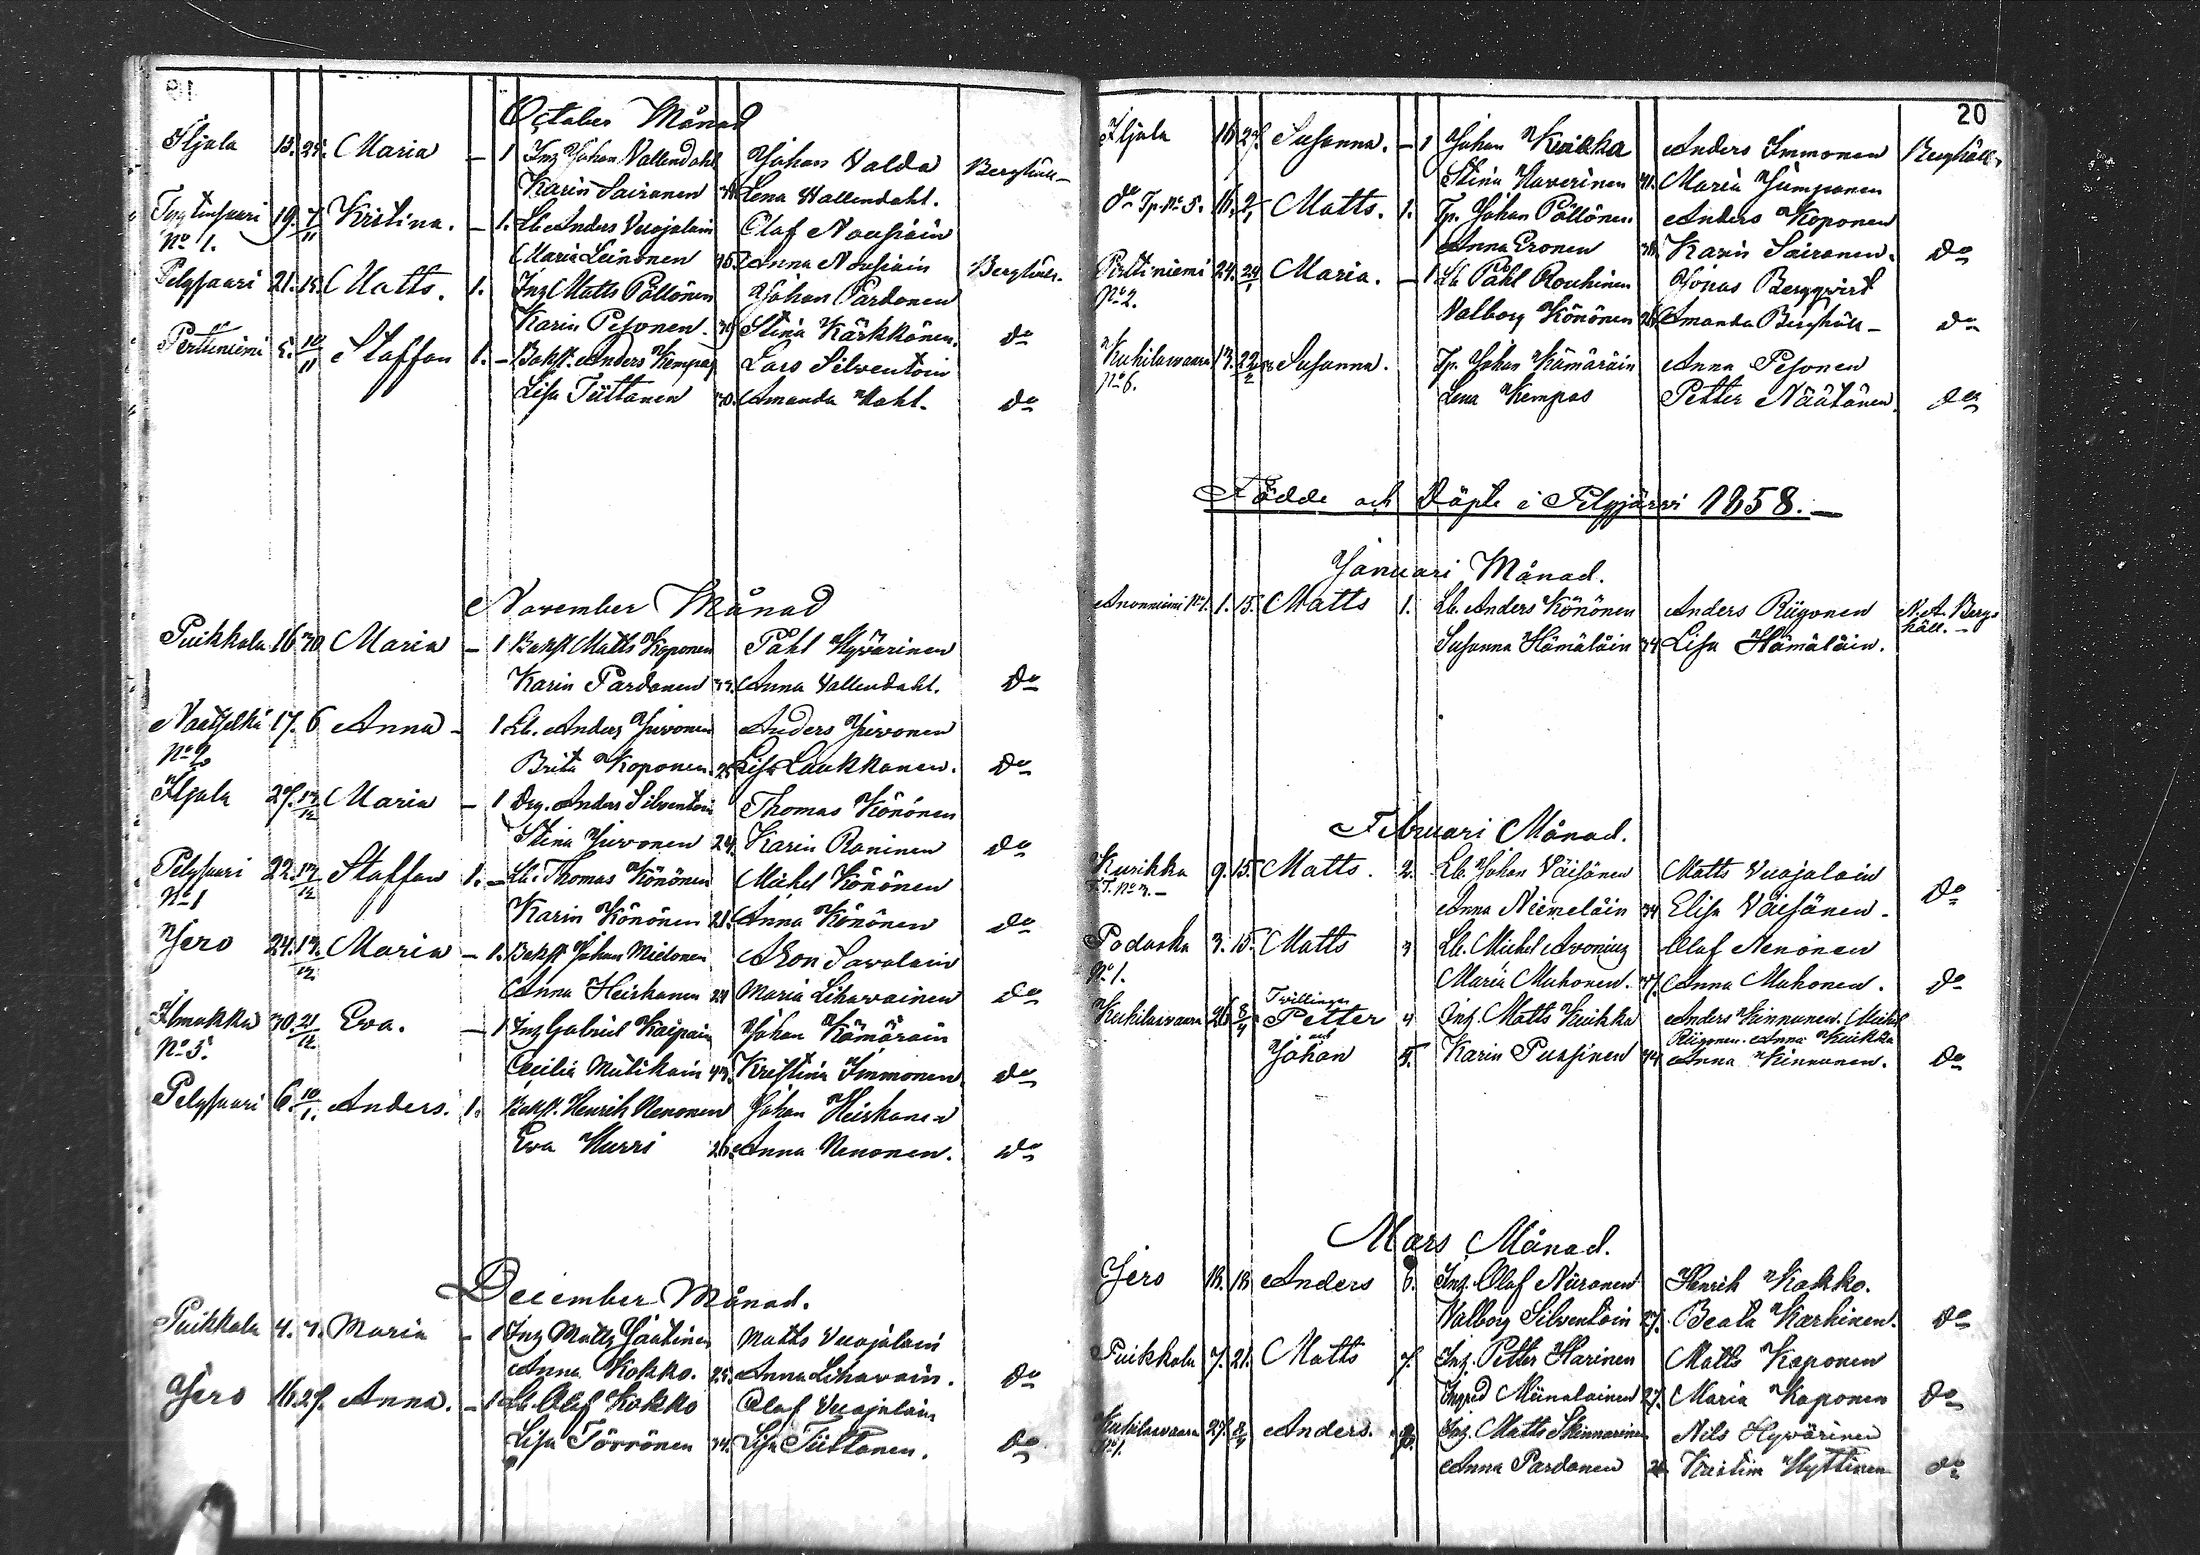 October Månad
Iljala 13. 25. Maria – 1 Inh Johan Vallendahl Johan Valda
Karin Sairanen Lena Wallendahl. Berghäll
19. 7/11 Kristina. – 1. Lb. Anders Vuojalain Olaf Nousiain
No 1. Maria Leinonen Anna Nousiain Berghäll.
Pelysaari 21. 15. Matts. 1. Inh Matts Pöllönen Johan Pardonen
Karin Pesonen. Stina Kärkkönen. do
Perttiniemi 5. 10/11 Staffan 1. – Bokst. Anders Kempas Lars Silventoin
Lisa Tiittanen 30. Amanda Kahl. do
November Månad
Puikkola 16 30 Maria – 1 Bokst Matts Koponen Påhl Hyvärinen
Karin Pardonen 33. Anna Vallendahl. do
Naatselkä 17. 6 Anna – 1 Lb. Anders Jurvonen Anders Jurvonen
No 2 Brita Koponen Lisa Laukkanen. do
Iljala 27. 13/12 Maria – 1 Drg. Anders Silventoin Thomas Könönen
Stina Jurvonen 24. Karin Raninen do
Pelysaari 22. 13/12 Staffan 1. – Lb. Thomas Könönen Michel Könönen
No 1 Karin Könönen 21. Anna Könönen do
Jero 24. 13/12 Maria – 1. Bokst Johan Mielonen Aron Savolain
Anna Heiskanen 24 Maria Lihavainen do
Ilmakka 30. 21/12 Eva. – 1 Inh Gabriel Kaipain Johan Kämäräin
No 5. Cecilia Mutikain 43. Kristina Immonen do
Pelysaari 6. 10/1. Anders. 1. Bokst. Henrik Nenonen Johan Heiskanen
Eva Hurri 26. Anna Nenonen. do
December Månad.
Puikkola 4. 7. Maria – 1 Inh Matts Jäätinen Matts Vuojalain
Anna Kokko. 25. Anna Lihavain. do
Jero 16. 27. Anna. – 1 Lb. Olof Kokko Olof Vuojalain
Lisa Törrönen 34. Lisa Tiittanen. do
20
Iljala 16 27. Susanna. – 1 Johan Kuikka Anders Immonen Berghäll
Stina Haverinen 41. Maria Jumponen
do Tp. No 5. 16. 2/1 Matts. 1. Tp. Johan Pöllönen Anders Koponen
Anna Eronen 38. Karin Sairanen. do
Perttiniemi 24. 24/1 Maria. – 1 Lb Påhl Rouhinen Jonas Bergqvist
No 2. Valborg Könönen Amanda Berghäll – do
Kukilawaara 13. 22/2 Susanna. Tp. Johan Kämäräin Anna Pesonen
No 6. Lena Kempas Petter Näätänen. do
Födde och Döpte i Pelgjärvi 1858. –
Januari Månad.
Anonniemi No 1. 1. 15. Matts 1. Lb. Anders Könönen Anders Riigonen N. A. Berg-
Susanna Hämäläin 34 Lisa Hämäläin. häll. –
Februari Månad.
Kurikka 9. 15. Matts. 2. Lb. Johan Väisänen Matts Vuojalain
T. No 3. – Anna Niemeläin 34 Elisa Väisänen. do
Podaska 3. 15. Matts 3 Lb. Michel Avonius Olaf Nenonen
No 1. Maria Muhonen. 37. Anna Muhonen. do
Kukilawaara 26 8/4 Tvillingar Petter 4 Inh. Matts Kuikka Anders Kinnunen. Michel
och Riigonen. Anna Kuikka
Johan 5. Karin Pussinen 44 Anna Kinnunen. do
Mars Månad.
Jero 18. 18 Anders 6. Inh. Olof Niiranen Henrik Kokko.
Valborg Silventoin 27. Beata Karhinen. do
Puikkola 7. 21. Matts 7. Inh. Petter Harinen Matts Koponen
Ingrid Miinalainen 27. Maria Koponen do
Kukilawaara 27. 8/4 Anders. 8. Inh. Matts Skinnarinen Nils Hyvärinen
No 1. Anna Pardonen 26 Kristin Hyttinen do